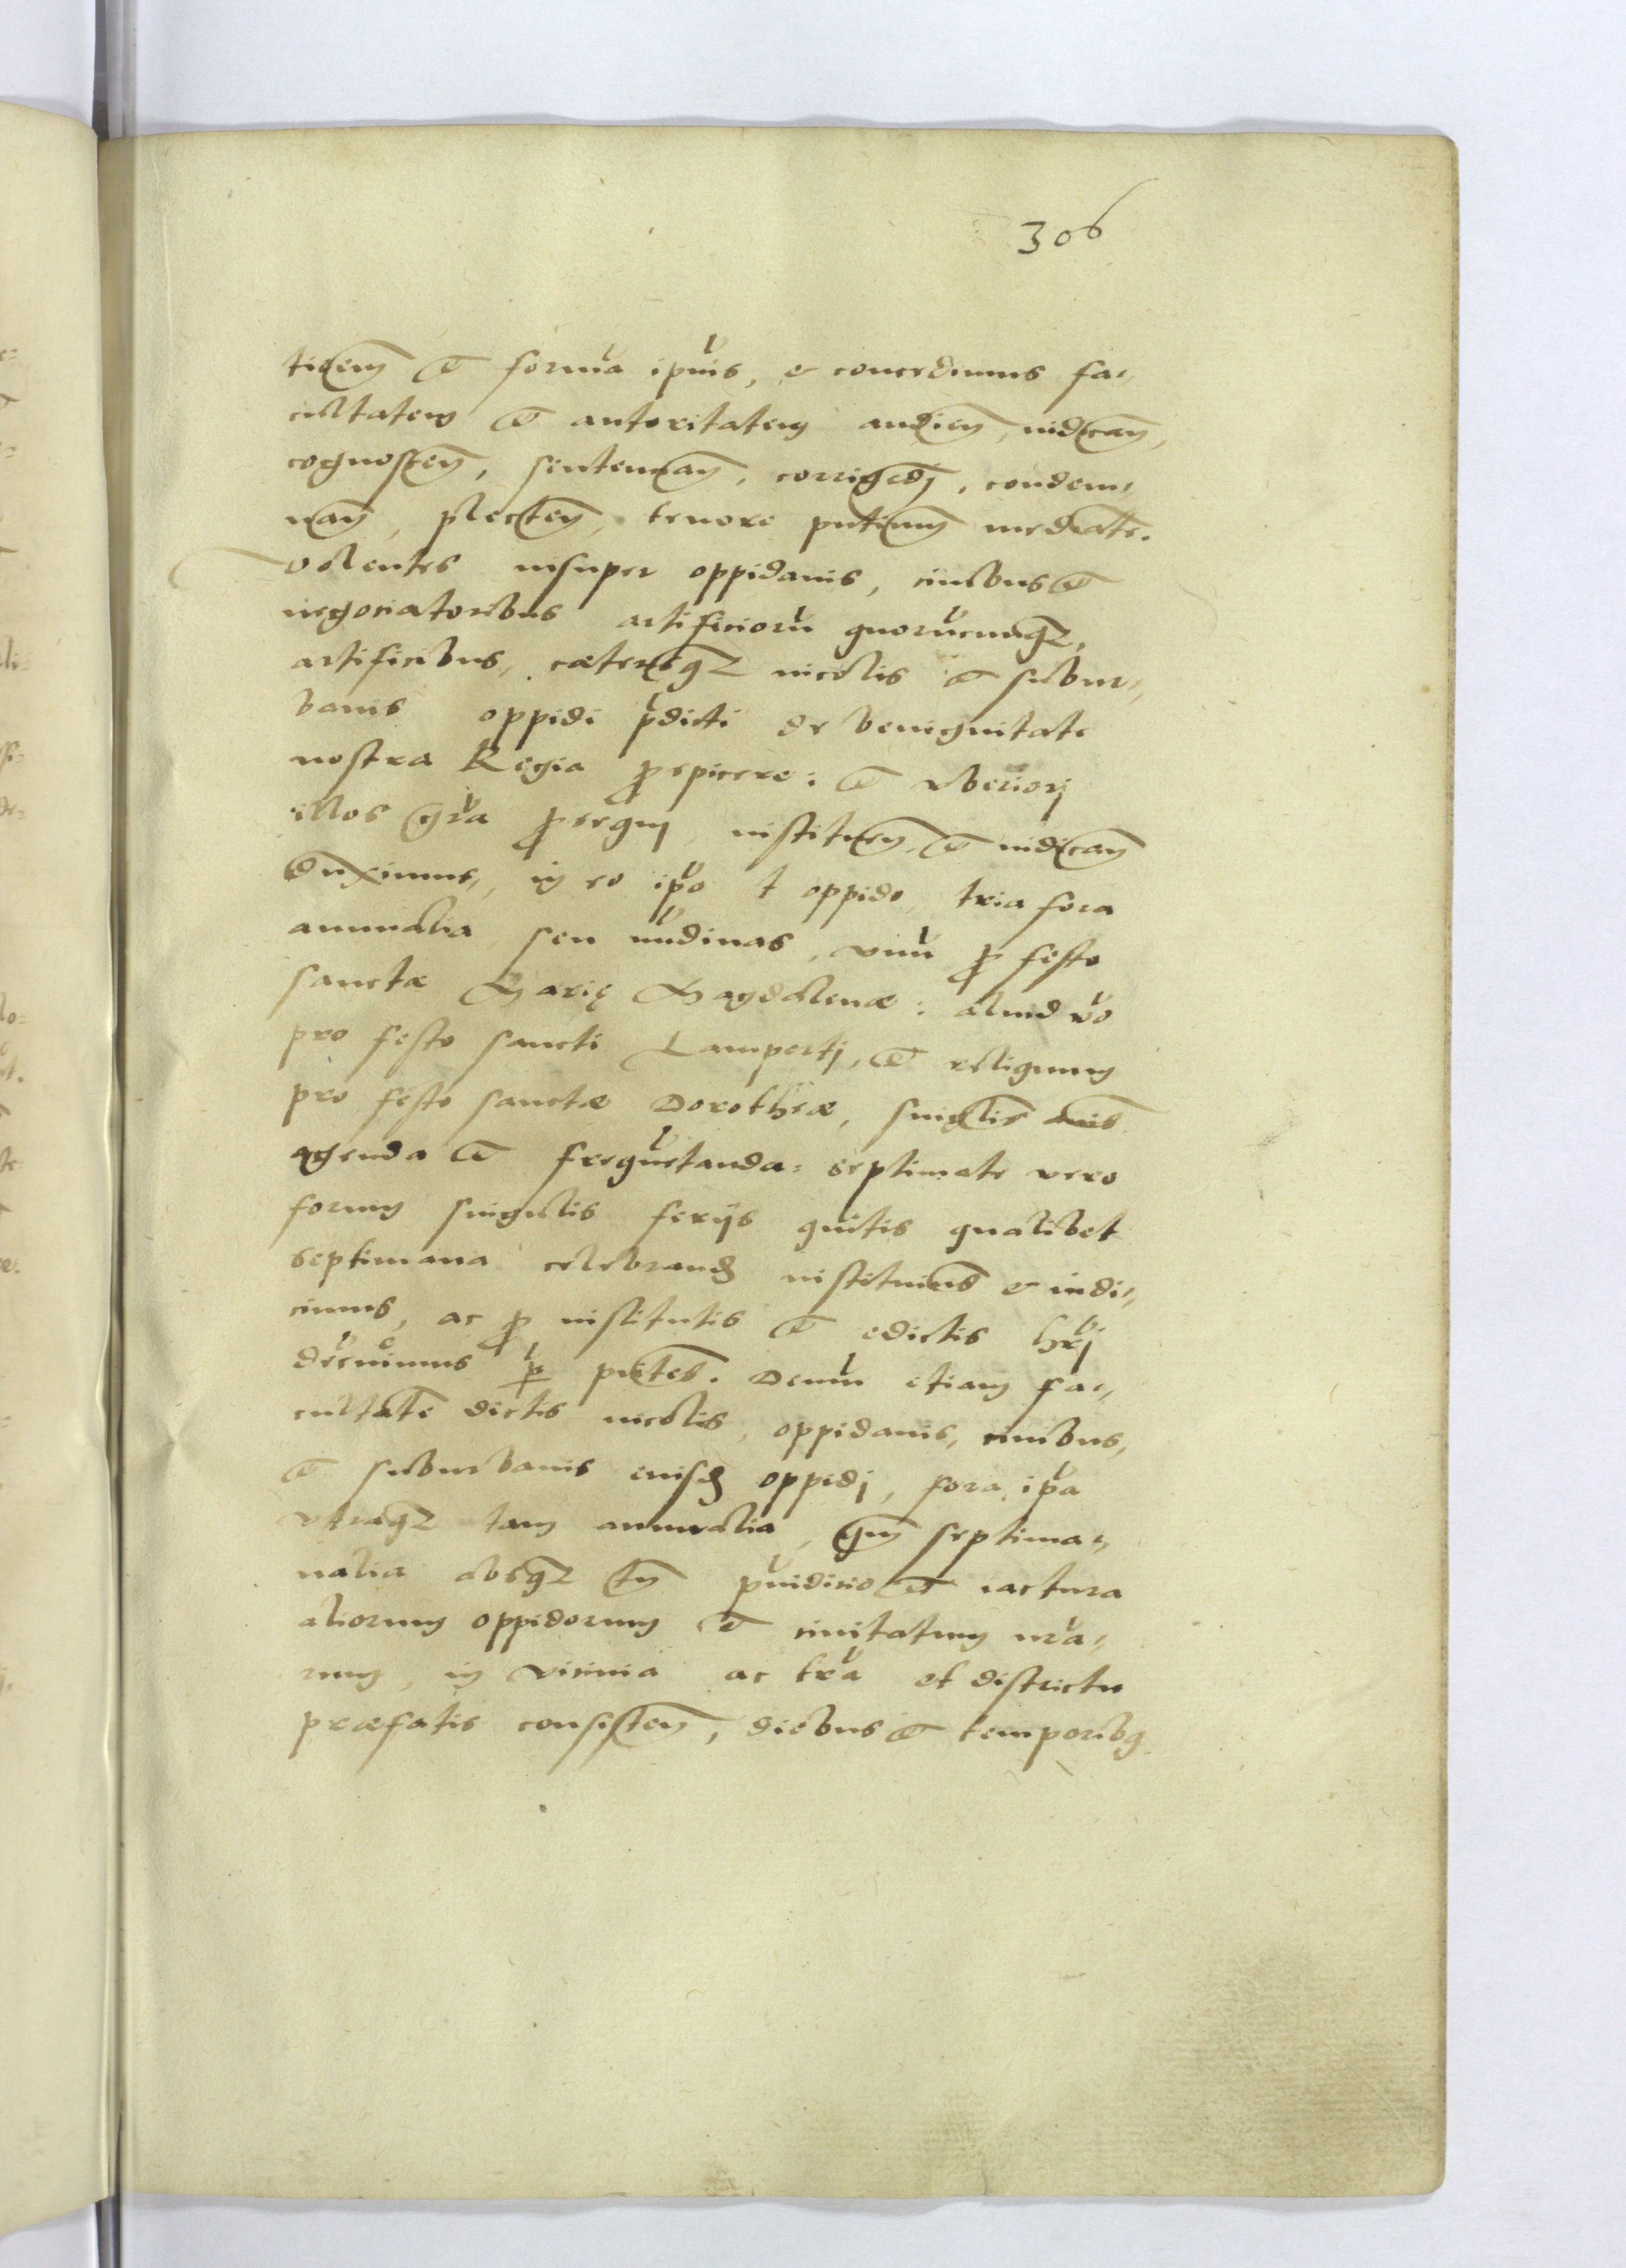 306
ticen̄ et forma ipīus, et concedimus fa-
cultatem et autoritatem audien̄, iudican̄,
cognoscen̄, sentencian̄, corrigēdj, condem-
nan̄, plecten̄, tenore pñtium mediāte.
Volentes insuper oppidanis, ciuibus et
negociatoribus artificiorū quorūcunq3,
artificibus, cæterisq3 incolis et subur-
banis oppidi p̄dicti de benignitate
nostra Regia prospicere: et vberiorj
illos gr̄a prosequj, instituen̄ et indican̄
duximus, in eo ip̄o t oppido tria fora
annualia seu nūdinas, vnū pro festo
sanctæ Marię Magdalenæ: aliud v̄o
pro festo sancti Lampertj, et reliquum
pro festo sanctæ Dorotheæ, singulis annis
agenda et frequētanda: septimale vero
forum singulis ferijs quītis qualibet
septimana celebrand̄ instituimus et indi-
cimus, ac pro institutis et edictis hr̄j
decernimus per pñtes. Denuū etiam fa-
cultatē dictis incolis, oppidanis, ciuibus,
et suburbanis eiusd̄ oppidj, fora ip̄a
vtraq3 tam annualia, qm̄ septima-
nalia absq3 tn̄ p̄iudicio et iactura
aliorum oppidorum et ciuitatum nr̄a-
rum, in vicinia ac tr̄a et districtu
præfatis consisten̄, diebus et temporibq